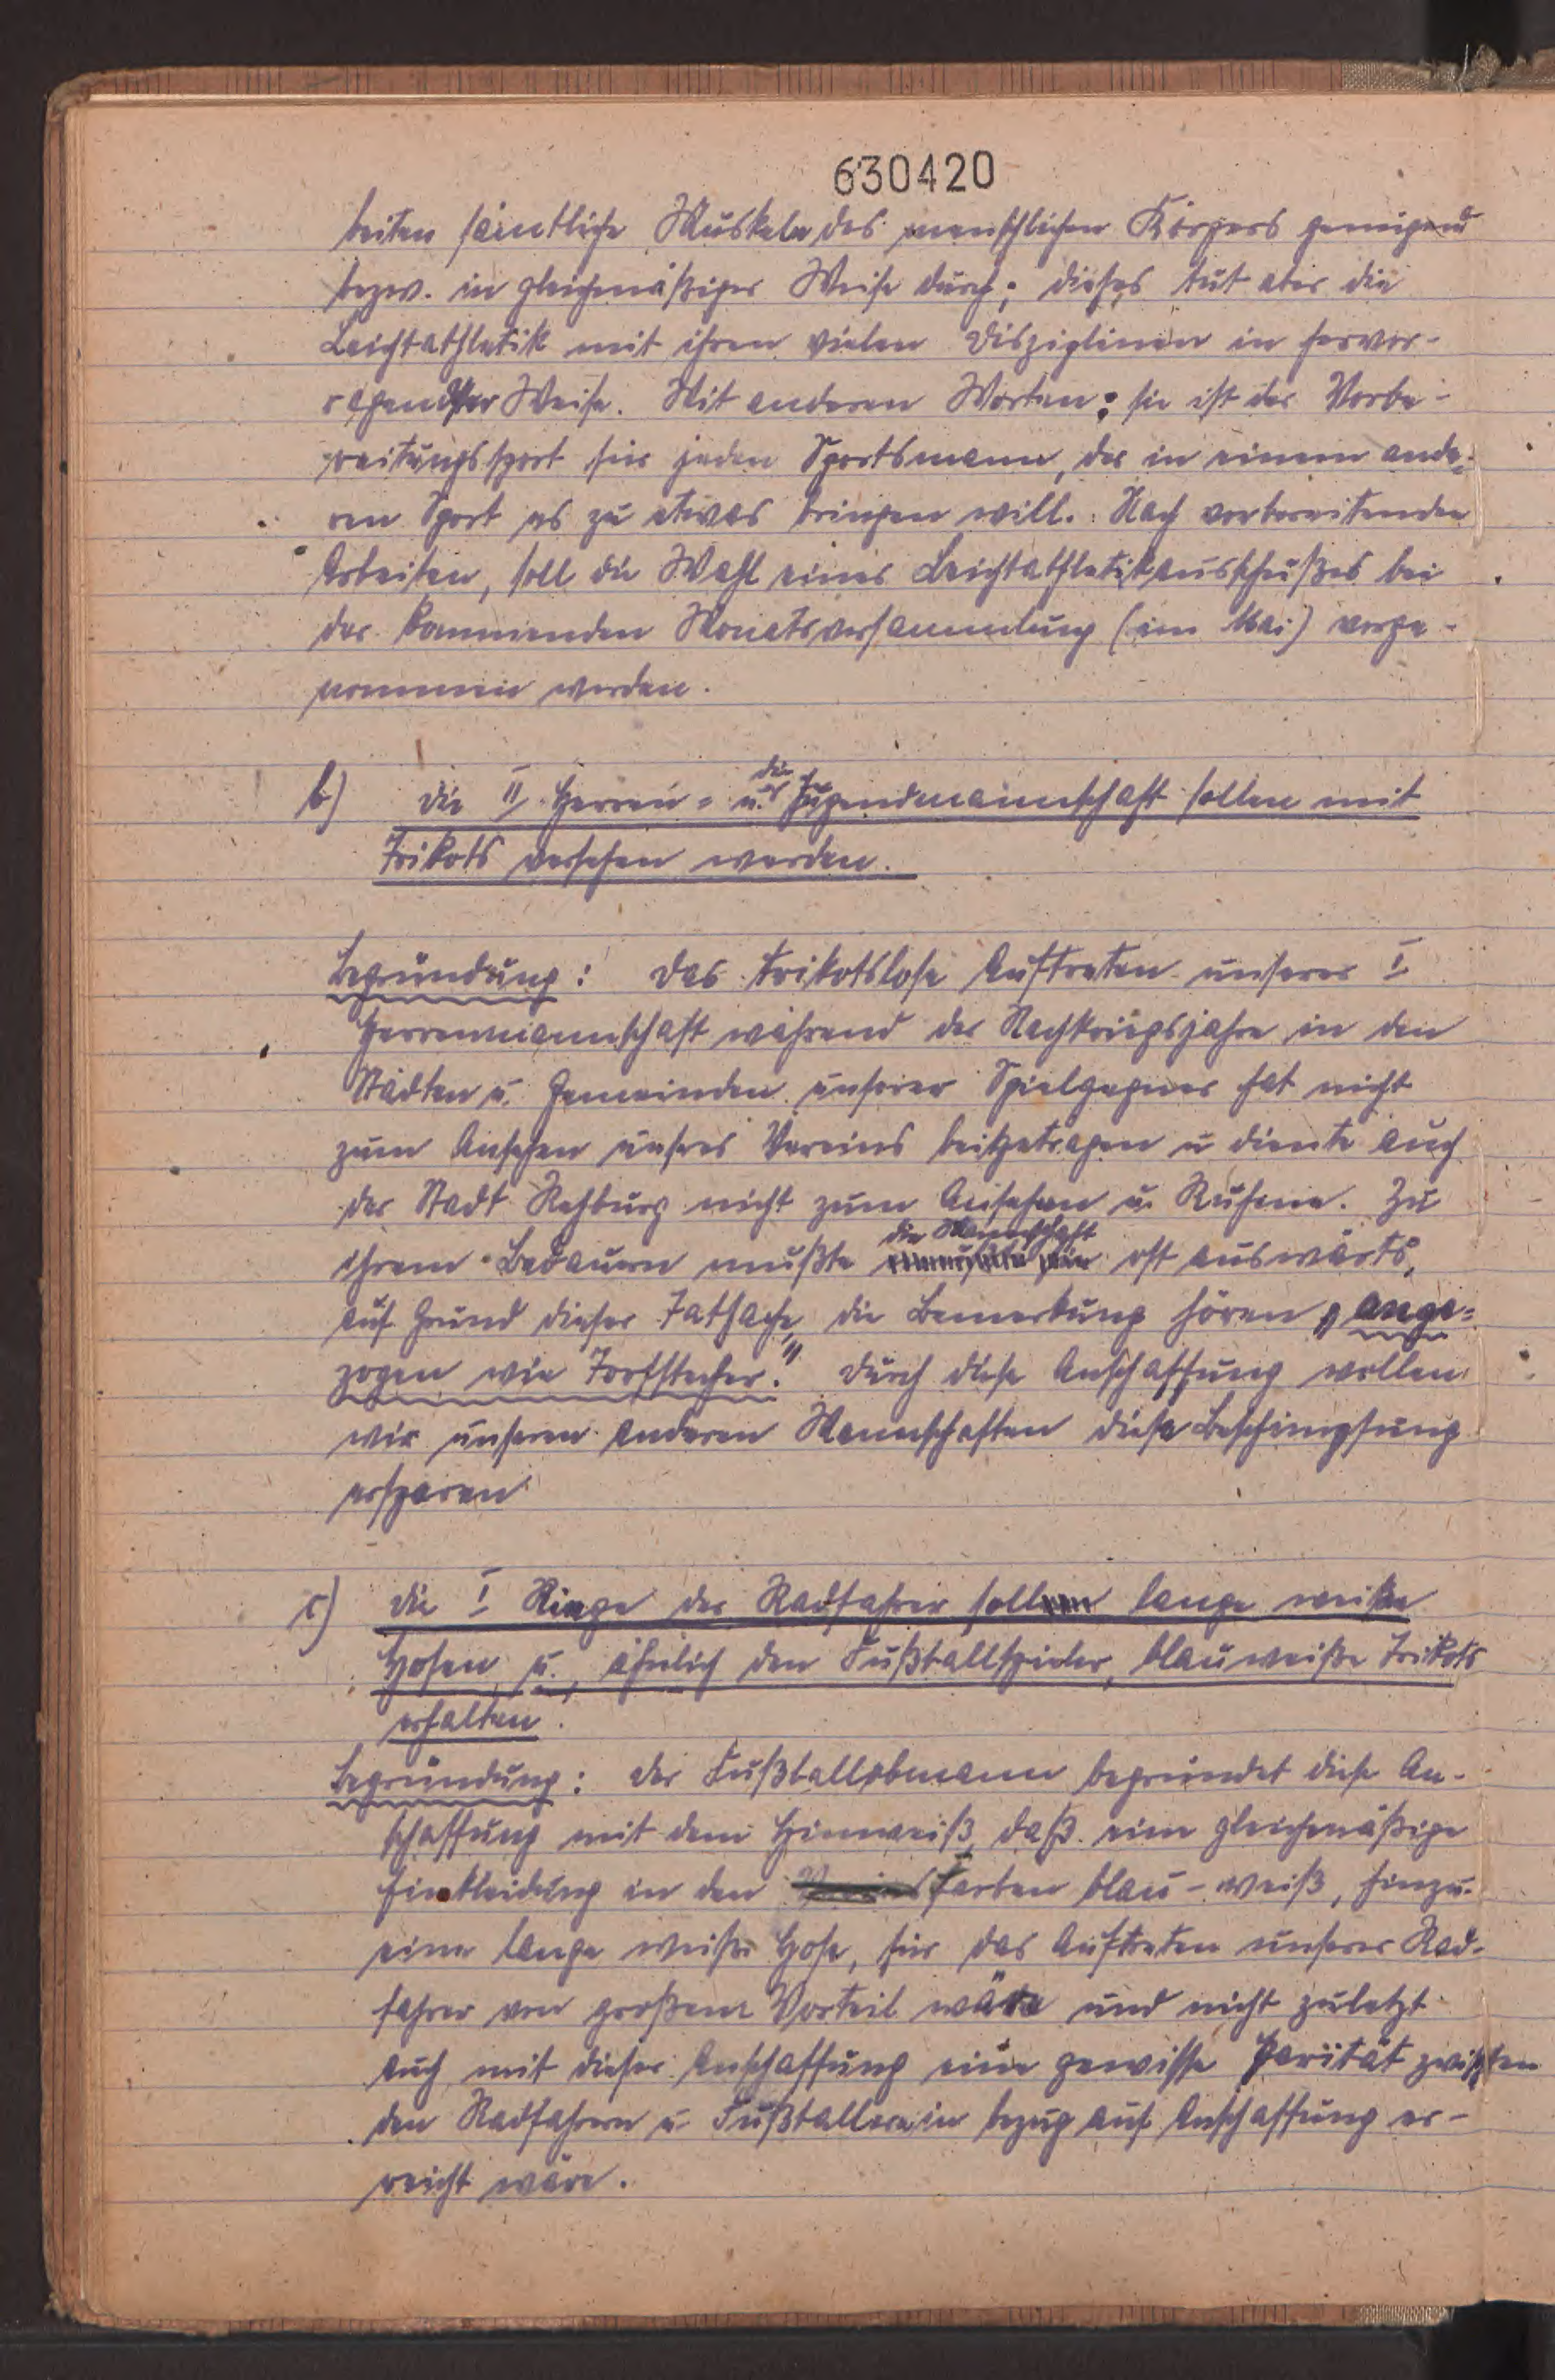 630420
beiten sämtliche Muskeln des menschlichen Körpers genügend
bezw. in gleichmäßiger Weise durch; dieses tut aber die
Leichtathletik mit ihren vielen Disziplinen in hervor-
ragender Weise. Mit anderen Worten: sie ist der Vorbe-
reitungssport für jeden Sportsmann, der in einem ande-
ren Sport es zu etwas bringen will. Nach vorbereitenden
Arbeiten, soll die Wahl eines Leichtathletikausschußes bei
der kommenden Monatsversammlung (im Mai) vorge-
nommen werden.
b) die II Herren- u. die Jugendmannschaft sollen mit
Trikots versehen werden.
Begründung: das trikotslose Auftreten unserer I
Herrenmannschaft während der Nachkriegsjahre in den
Städten u. Gemeinden unserer Spielgegner hat nicht
zum Ansehen unseres Vereins beigetragen u diente auch
der Stadt Rehburg nicht zum Ansehen u. Ruhme. Zu
ihrem Bedauern mußte die Mannschaft oft auswärts,
auf Grund dieser Tatsache, die Bemerkung hören „ange-
zogen wie Torfstecher." durch diese Anschaffung wollen
wir unseren anderen Mannschaften diese Beschimpfung
ersparen
c) die I Riege der Radfahrer soll lange weiße
Hosen u., ähnlich den Fußballspieler, blauweiße Trikots
erhalten.
Begründung: der Fußballobmann begründet diese An-
schaffung mit dem Hinweiß, daß eine gleichmäßige
Einkleidung in den Vereinsfarben blau-weiß, hinzu-
eine lange weiße Hose, für das Auftreten unserer Rad-
fahrer von großem Vorteil wäre und nicht zuletzt
auch mit dieser Anschaffung eine gewisse Parität zwischen
den Radfahrern u. Fußballern in bezug auf Anschaffung er-
reicht wäre.